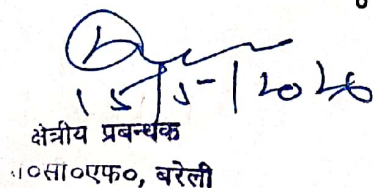 15/5/2020
क्षेत्रीय प्रबन्धक
०सी०एफ०, बरेली